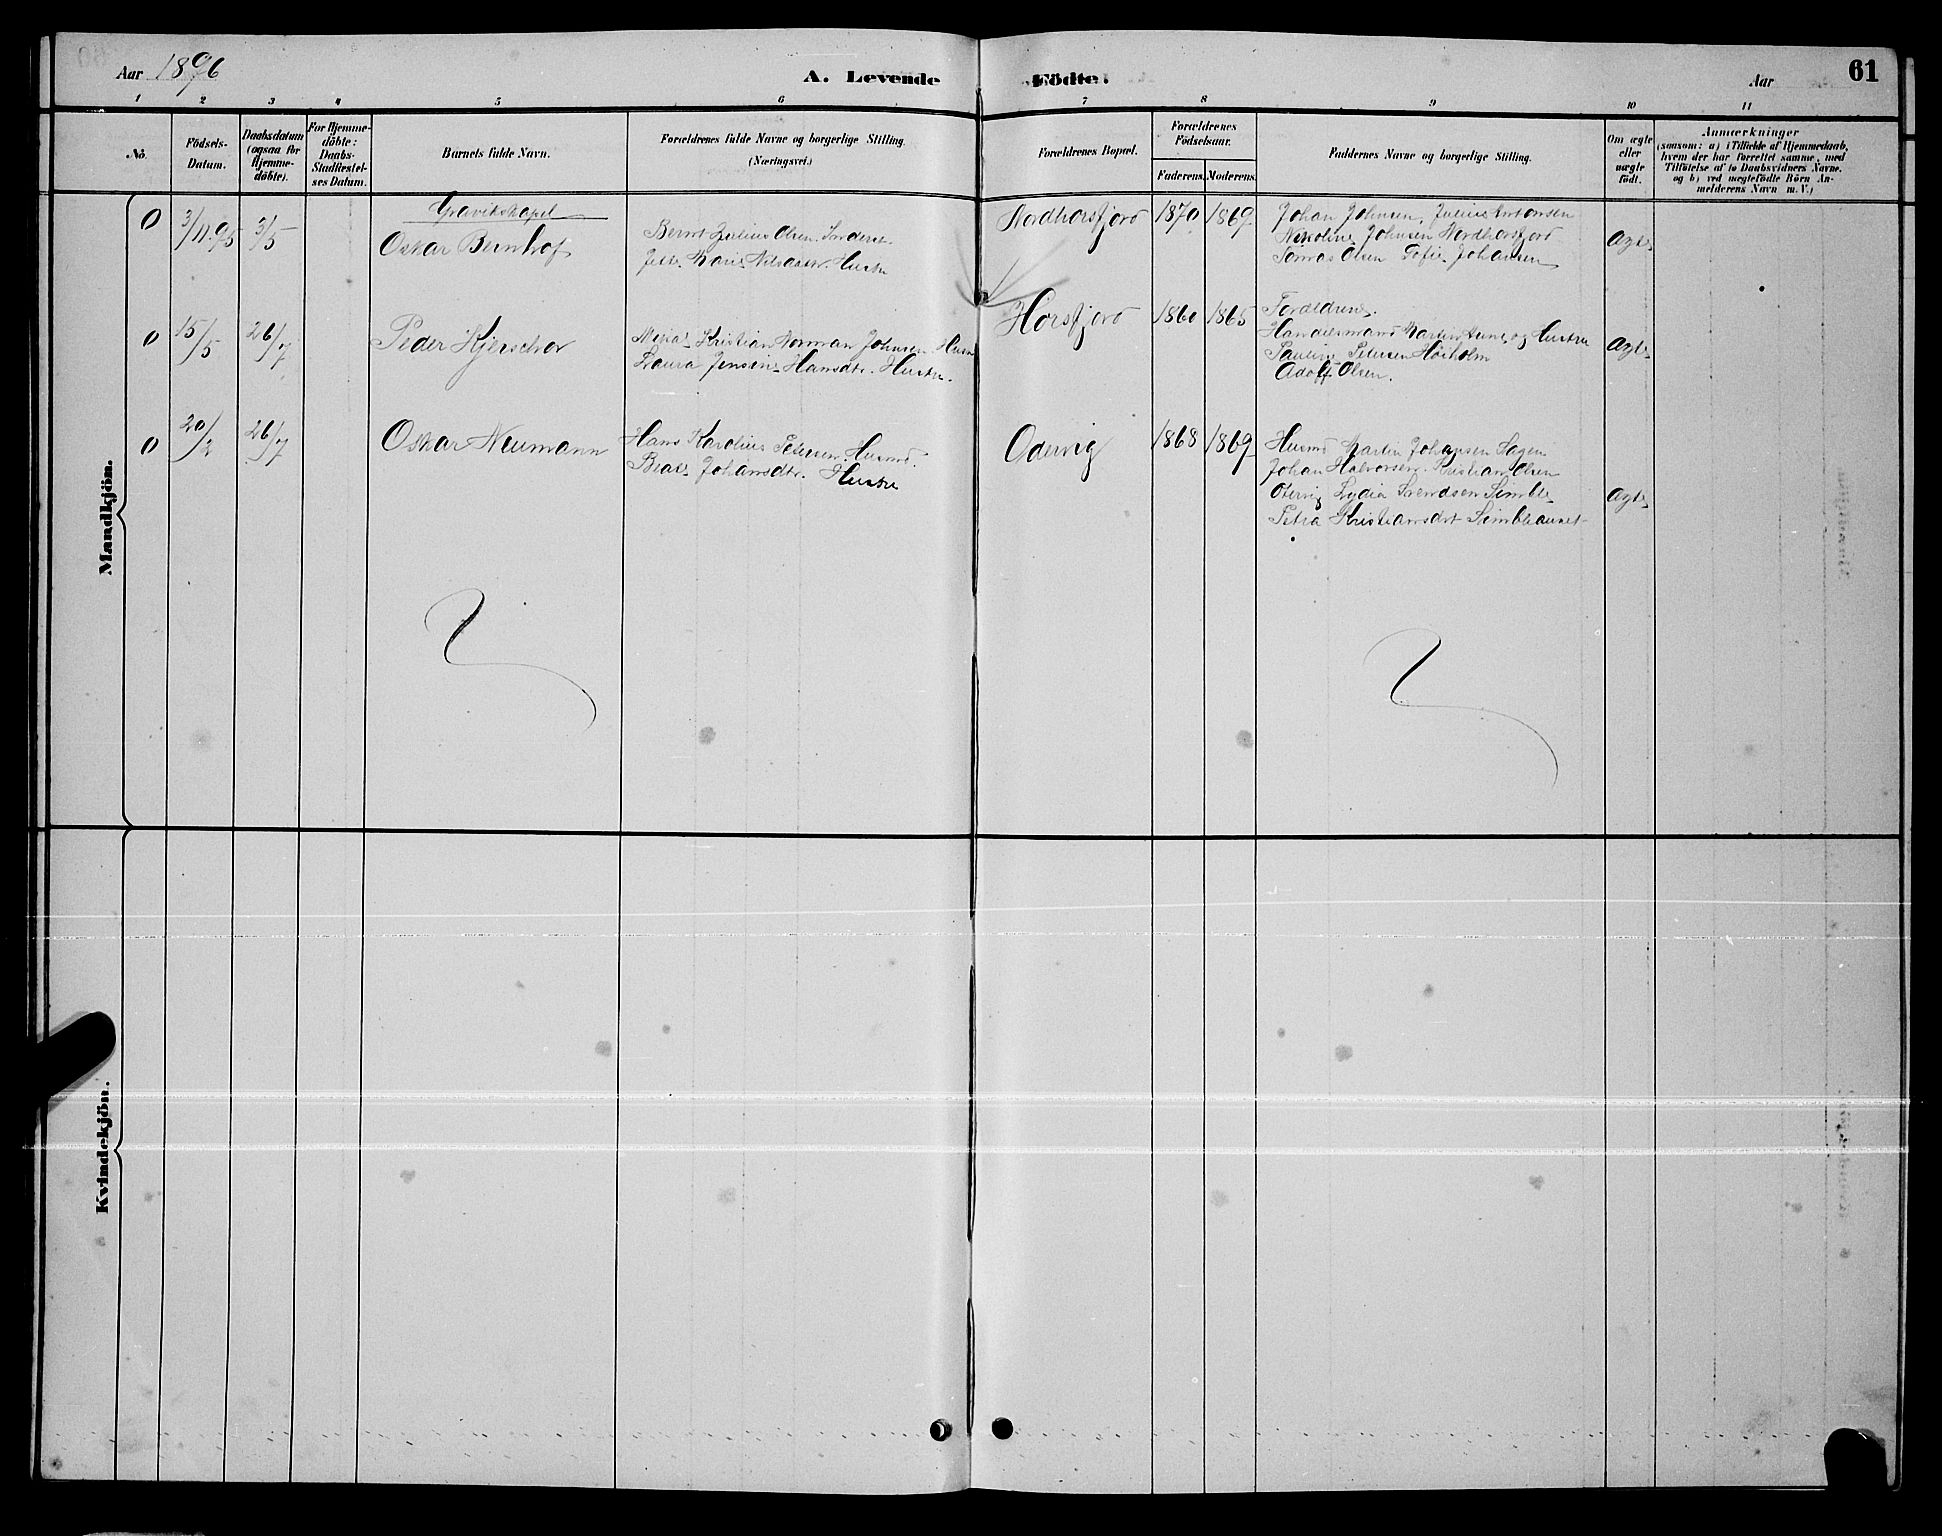 Aar 1896
A. Levende Födte.
Aar
61
1 2 3 4 5 6 7 8 9 10 11
No.
Födsels-
Datum.
Daabsdatum
(ogsaa for
Hjemme-
döbte).
For Hjemme-
döbte:
Daabs-
Stadfæstel-
ses Datum.
Barnets fulde Navn.
Forældrenes fulde Navne og borgerlige Stilling.
(Næringsvei.)
Forældrenes Bopæl.
Forældrenes
Födselsaar.
Faderens. Moderens.
Faddernes Navne og borgerlige Stilling.
Om ægte
eller
uægte
födt.
Anmærkninger
(saasom: a) i Tilfælde af Hjemmedaab,
hvem der har forrettet samme, med
Tilföielse af to Daabsvidners Navne,
og b) ved uægtefödte Börn An-
melderens Navn m. V.)
Mandkjön.
Gravikskapel
0 3/11.95 3/5
Oskar Bernhof
Bernt Julius Olsen
Marie Nilsdatr. Hustru
Nordhorsfjord 1870 1869
Johan Johnsen, Julius Antonsen
Nikoline Johnsen Nordhorsfjord
Tomas Olsen Sofie Johansen
Ægte
0 15/5 26/7
Peder Hjerschov
Kristian Norman Johnsen
Laura Jensine Hansdtr. Hustru.
Horsfjord 1860 1865
Forældrene.
Handelsmand Martin Aune og Hustru
Pauline Petersen Hösholm
Adolf Olsen.
Ægte
0 20/2 26/7
Oskar Neumann
Hans Karolius Petersen Husmd.
Johansdtr. Hustru
Odervig 1868 1869
Husmd Martin Johansen Hagen
Johan Halvorsen. Kristian Olsen
Otervig Lydia Svendsen Simble
Petra Kristiansdt Simbleaunet
Ægte
Kvindekjön.